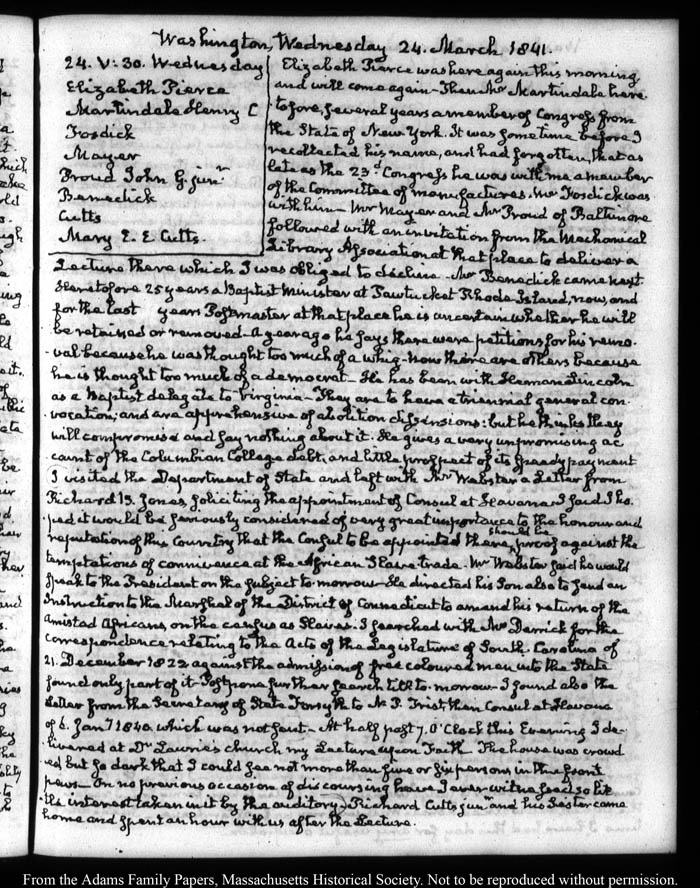 Washington, Wednesday 24. March 1841.
24. V: 30. Wednesday
Elizabeth Pierce
Martindale Henry C
Fosdick
Mayer
Proud John G. junr
Benedick
Cutts
Mary E. E Cutts.
Elizabeth Pierce was here again this morning
and will come again - Then Mr Martindale here
tofore, several years a member of Congress from
the State of New York. It was some time before I
recollected his name, and had forgotten, that as
late as the 23d Congress he was with me a member
of the Committee of manufactures. Mr Fosdick was
with him - Mr Mayer and Mr Proud of Baltimore
followed with an invitation from the Mechanical
Library Association at that place to deliver a
Lecture there which I was obliged to decline. Mr Benedick came next.
Heretofore 25 years a Baptist Minister at Pawtucket Rhode-Island, now, and
for the last years Postmaster at that place he is uncertain whether he will
be retained or removed - A year ago he says there were petitions for his remo-
val because he was thought too much of a whig - now there are others because
he is thought too much of a democrat - He has been with Heman Lincoln
as a Baptist delegate to Virginia - They are to have a triennial general con-
vocation; and are apprehensive of abolition dissensions: but he thinks they
will compromise and say nothing about it. He gives a very unpromising ac-
count of the Columbian College debt, and little prospect of its speedy payment
I visited the Department of State and left with Mr Webster a Letter from
Richard B. Jones, soliciting the appointment of Consul at Havana. I said I ho-
ped it would be seriously considered of very great importance to the honour and
reputation of this Country that the Consul to be appointed there, should be proof against the
temptations of connivance at the African Slave trade. Mr Webster said he would
speak to the President on the subject to-morrow - He directed his Son also to send an
Instruction to the Marshal of the District of Connecticut to amend his return of the
Amistad Africans, on the census as Slaves. I searched with Mr Derrick for the
correspondence relating to the Acts of the Legislature of South Carolina of
21. December 1822 against the admission of free coloured men into the State
found only part of it - Postpone further search till to-morrow - I found also the
Letter from the Secretary of State Forsyth to N. P. Trist, then Consul at Havana
of 6. Jany 1840. which was not sent - At half past 7. O'Clock this Evening I de-
livered at Dr Laurie's church my Lecture upon Faith. The house was crowd
ed but so dark that I could see not more than five or six persons in the front
pews - On no previous occasion of discoursing have I ever witnessed so lit
tle interest taken in it by the auditory. Richard Cutts junr and his Sister came
home and spent an hour with us after the Lecture.
From the Adams Family Papers, Massachusetts Historical Society. Not to be reproduced without permission.